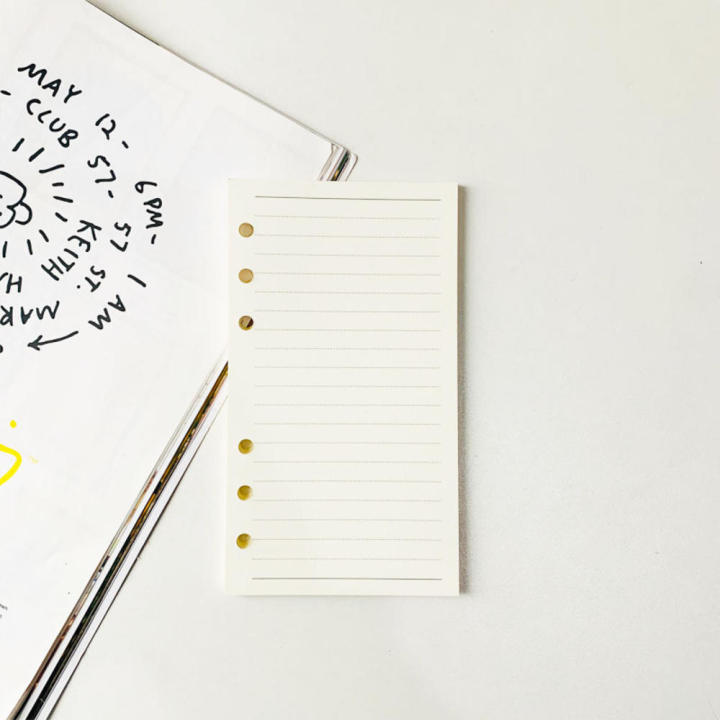 MAY 12- 6PM-
CLUB 57- 57 ST.
I AM
KEITH
HA
MAR